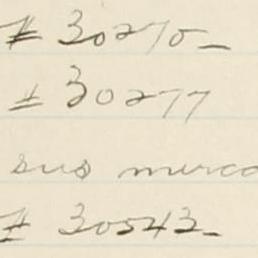 # 30270_
# 30277
sus merca
# 30543_